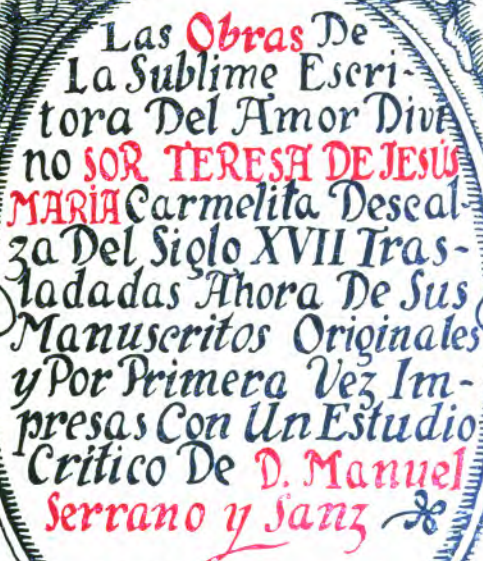 Las Obras De
La Sublime Escri-
tora Del Amor Divi
no SOR TERESA DE JESÚS
MARÍA Carmelita Descal-
za Del Siglo XVII Tras-
ladadas Ahora De Sus
Manuscritos Originales
y Por Primera Vez Im-
presas Con Un Estudio
Crítico De D. Manuel
Serrano y Sanz